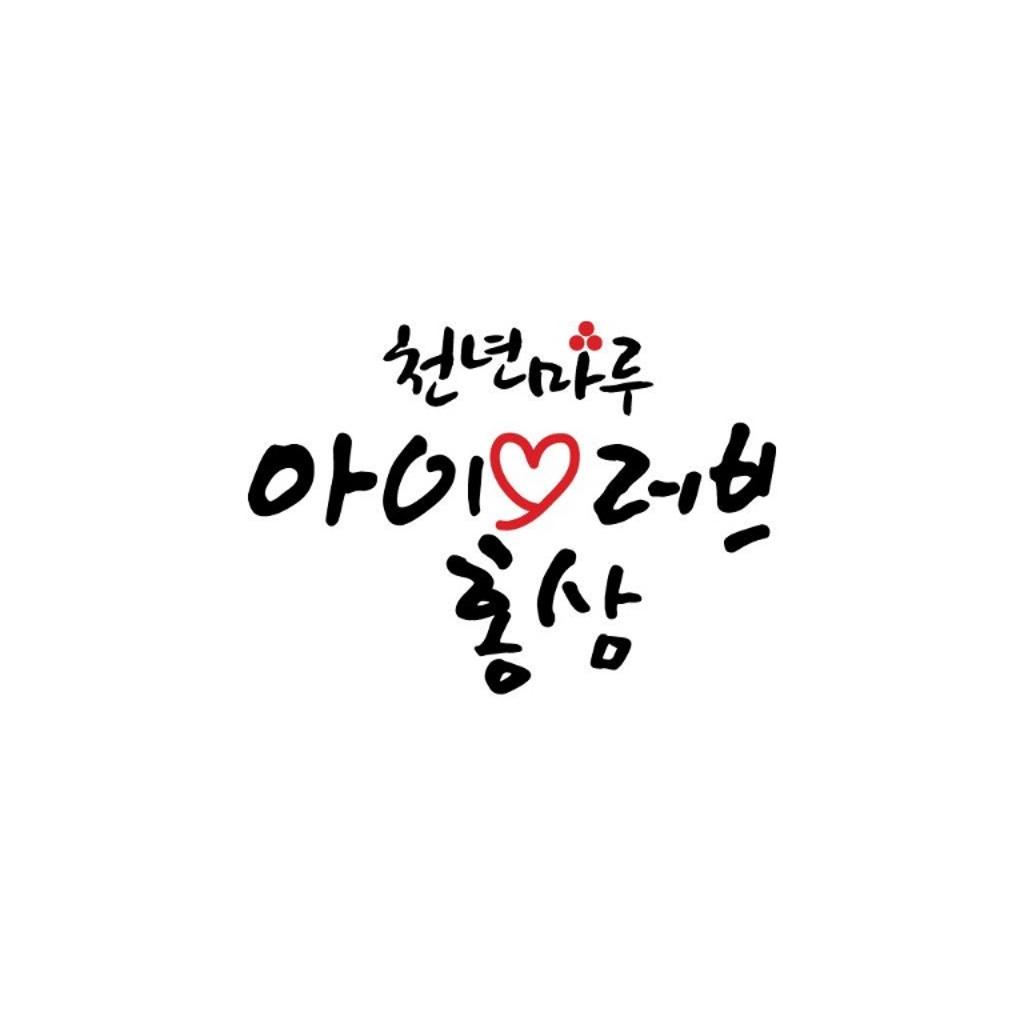 천년마루
아이♡러브
홍삼